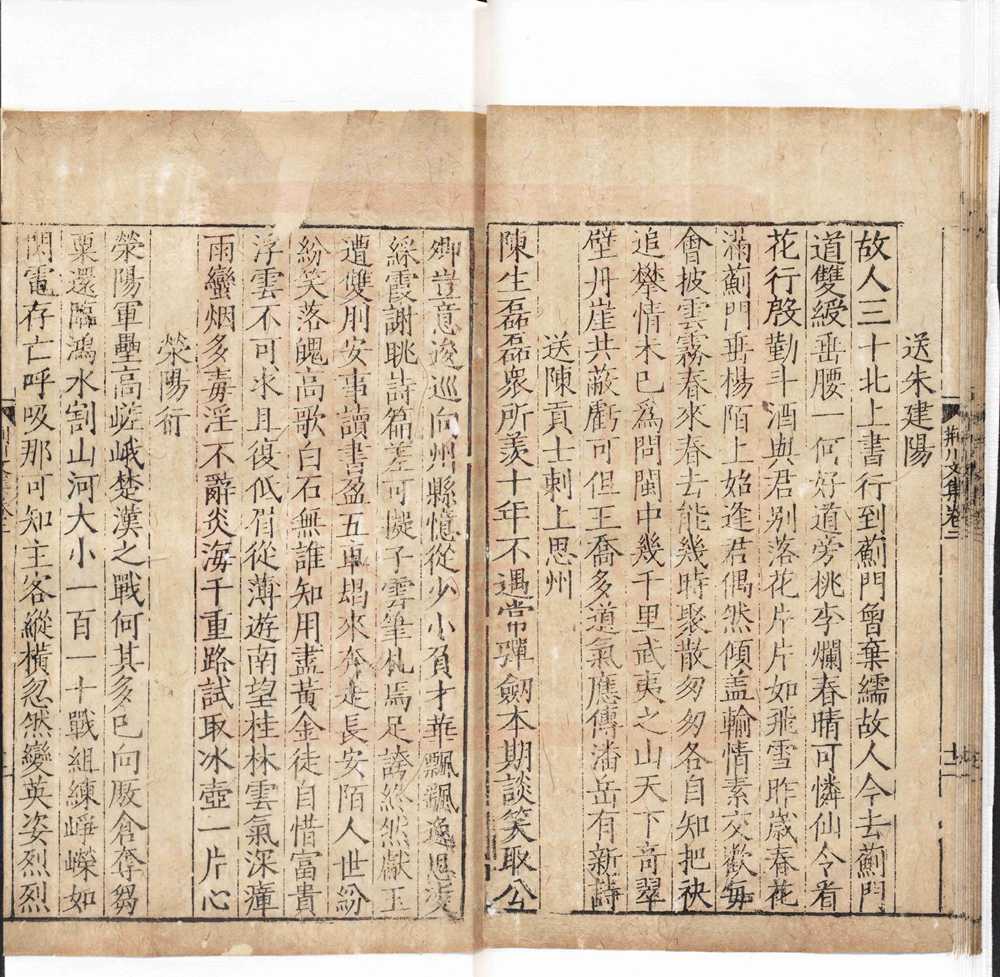 送朱建陽
故人三十北上書行到薊門曾棄繻故人今去薊門
道雙綬垂腰一何好道旁桃李爛春晴可憐仙令看
花行殷勤斗酒與君别落花片片如飛雪昨歳春花
滿薊門垂楊陌上始逢君偶然傾盖輸情素交歡毎
會披雲霧春來春去能幾時聚散匆匆各自知把袂
追攀情未已為問閩中幾千里武夷之山天下竒翠
壁丹崖共蔽虧可但王喬多道氣應傳潘岳有新詩
送陳貢士刺上思州
陳生磊磊衆所羡十年不遇常彈劒本期談笑取公
卿豈意逡巡向州縣憶從少小負才華飄飄逸思凌
綵霞謝眺詩篇差可擬子雲筆札焉足誇終然獻玉
遭雙刖安事讀書盈五車朅來奔走長安陌人世紛
紛笑落魄高歌白石無誰知用盡黃金徒自惜富貴
浮雲不可求且復低眉從薄遊南望桂林雲氣深瘴
雨蠻烟多毒淫不辭炎海千重路試取冰壺一片心
滎陽行
滎陽軍壘高嵯峨楚漢之戰何其多已向厫倉奪芻
粟還臨鴻水割山河大小一百一十戰組練崢嶸如
閃電存亡呼吸那可知主客縱橫忽然變英姿烈烈
荆川文集卷三